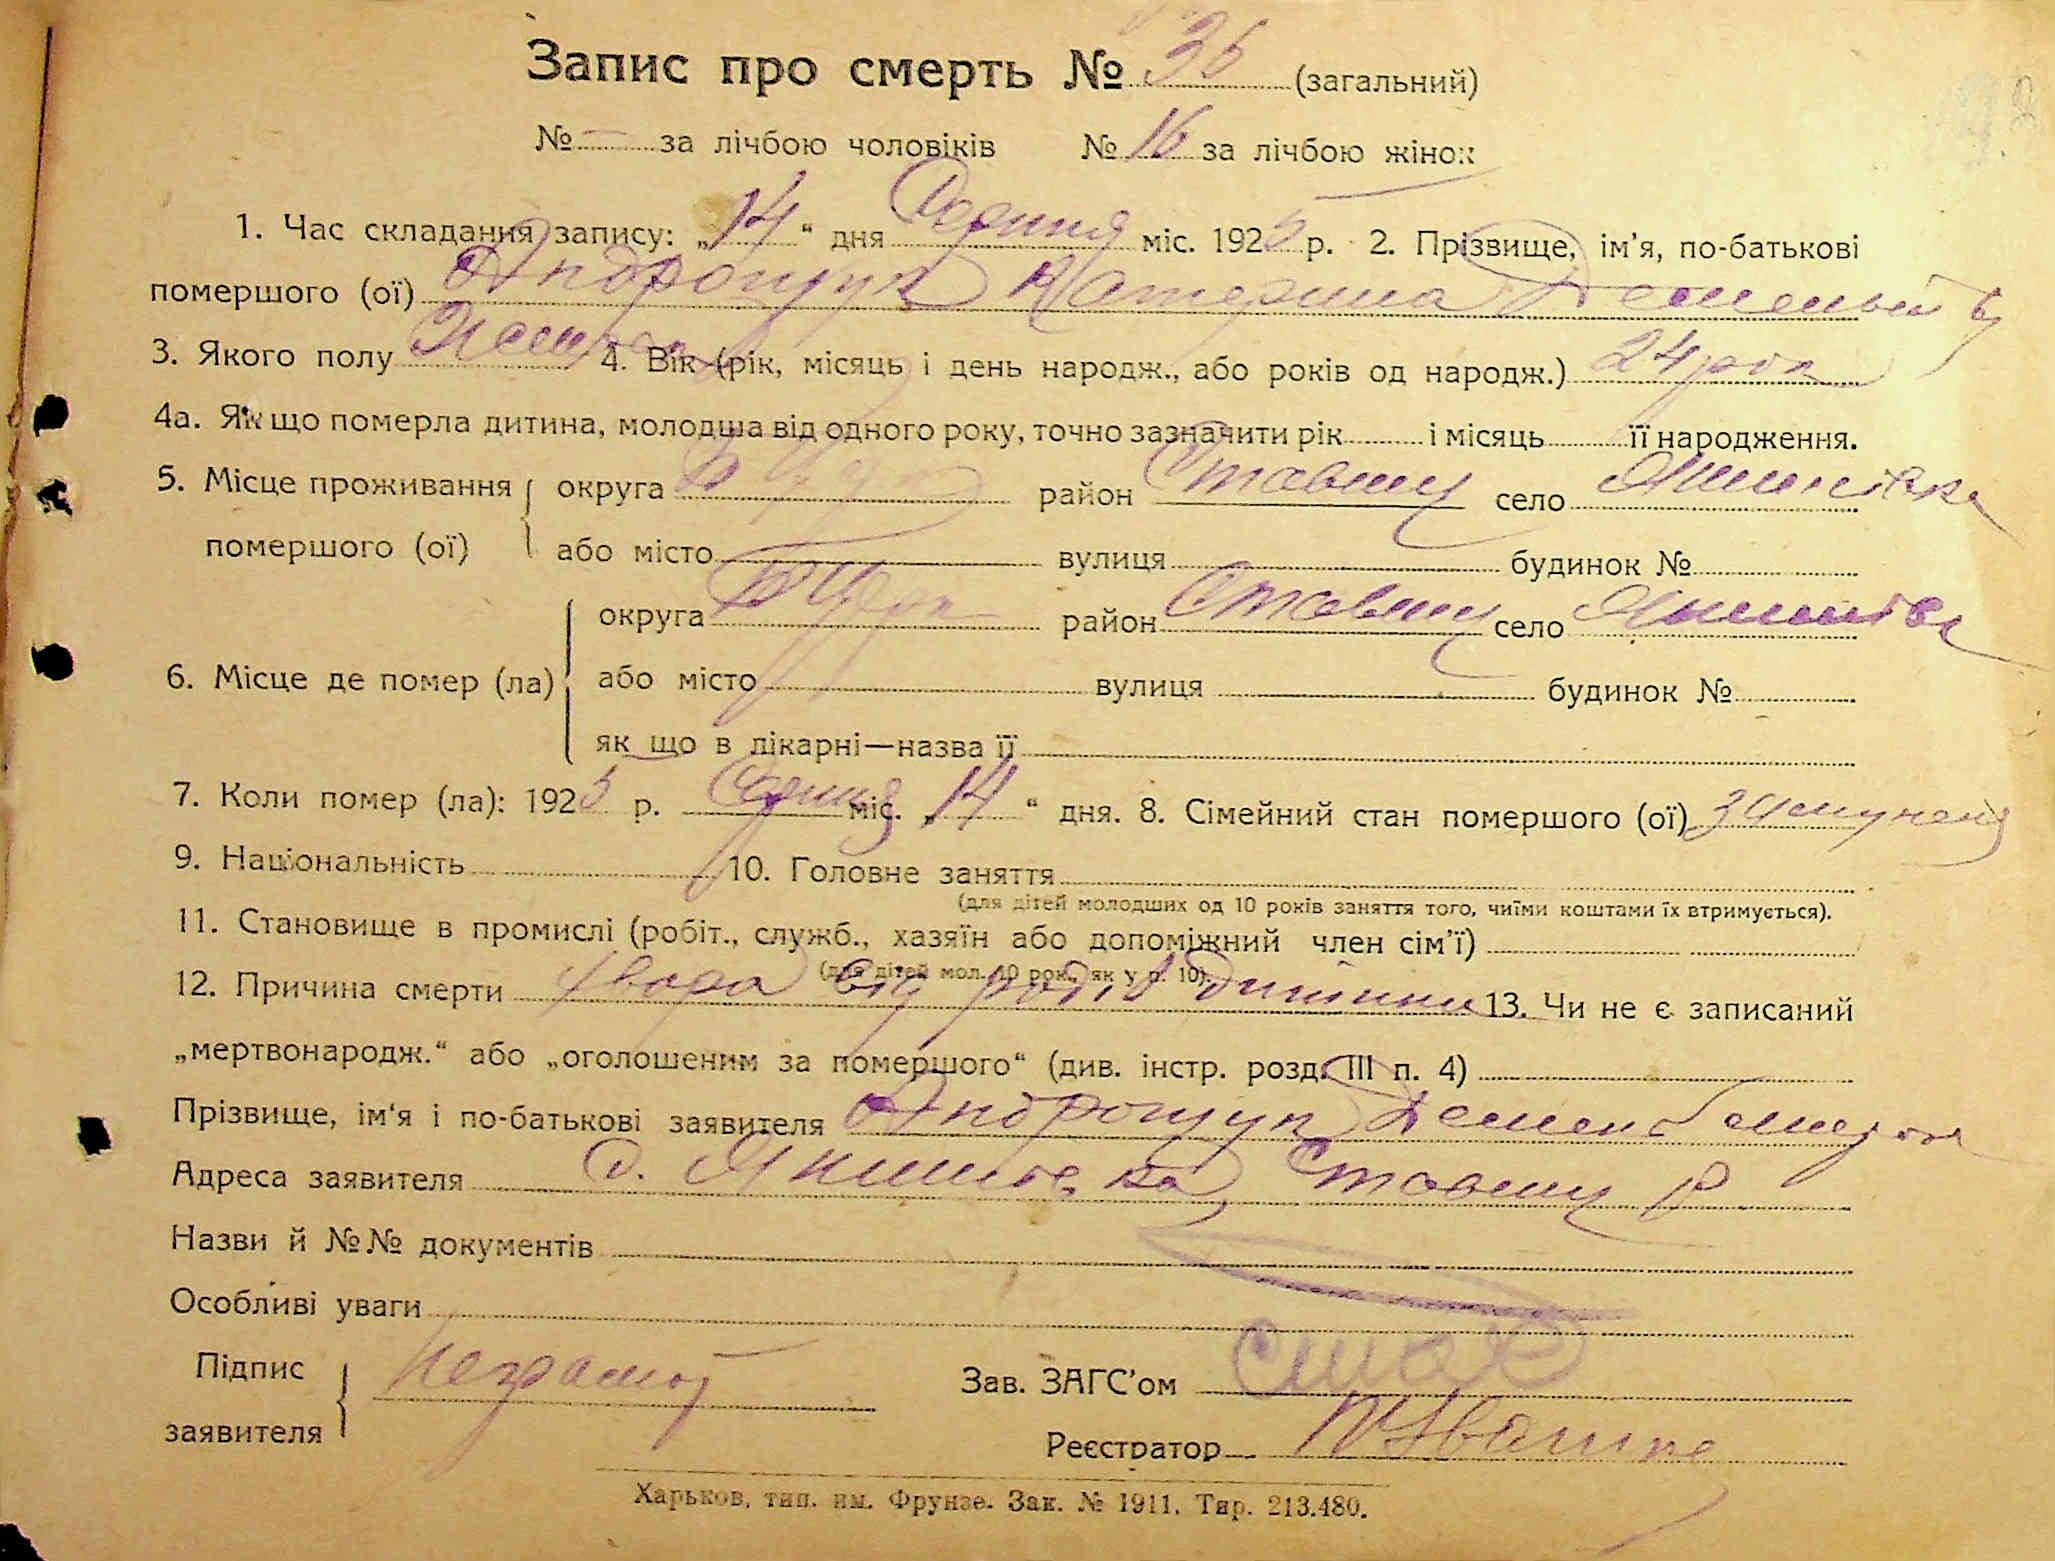 Запис про смерть № 35 (загальний)
№ — за лічбою чоловіків № 16 за лічбою жінок
1. Час складання запису: „14“ дня Серпня міс. 1925 р. 2. Прізвище, ім’я, по-батькові
помершого (ої) Андрощук Катерина
3. Якого полу 4. Вік (рік, місяць і день народж., або років од народж.) 24 рок
4а. Як що померла дитина, молодша від одного року, точно зазначити рік і місяць її народження.
5. Місце проживання округа Б Церк район Ставищ село Якимівка
помершого (ої) або місто вулиця будинок №
округа Б Церк район Ставищ село Якимівк
6. Місце де помер (ла) або місто вулиця будинок №
як що в лікарні—назва її
7. Коли помер (ла): 1925 р. Серпня міс. „14“ дня. 8. Сімейний стан помершого (ої) замужня
9. Національність 10. Головне заняття
(для дітей молодших од 10 років заняття того, чиїми коштами їх втримується).
11. Становище в промислі (робіт., служб., хазяїн або допоміжний член сім’ї)
(для дітей мол. 10 рок., як у п. 10).
12. Причина смерти хвора від родів дитини 13. Чи не є записаний
„мертвонародж.“ або „оголошеним за помершого“ (див. інстр. розд. III п. 4)
Прізвище, ім’я і по-батькові заявителя Андрощук Семен
Адреса заявителя с. Якимівка Ставищ Р
Назви й №№ документів
Особливі уваги
Підпис неграмот Зав. ЗАГС’ом
заявителя Реєстратор
Харьков, тип. им. Фрунзе. Зак. № 1911. Тир. 213.480.